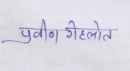 प्रवीण गेहलोत